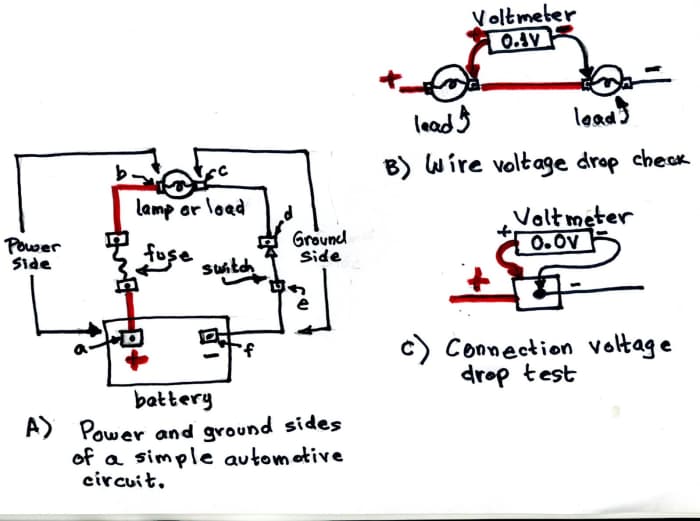 Voltmeter
+ 0.1V -
+ -
load load
B) Wire voltage drop check
b c
lamp or load
d
Power
side
fuse
switch
Ground
side
e
a f
+ -
battery
A) Power and ground sides
of a simple automotive
circuit.
Voltmeter
+ 0.0V -
+ -
C) Connection voltage
drop test